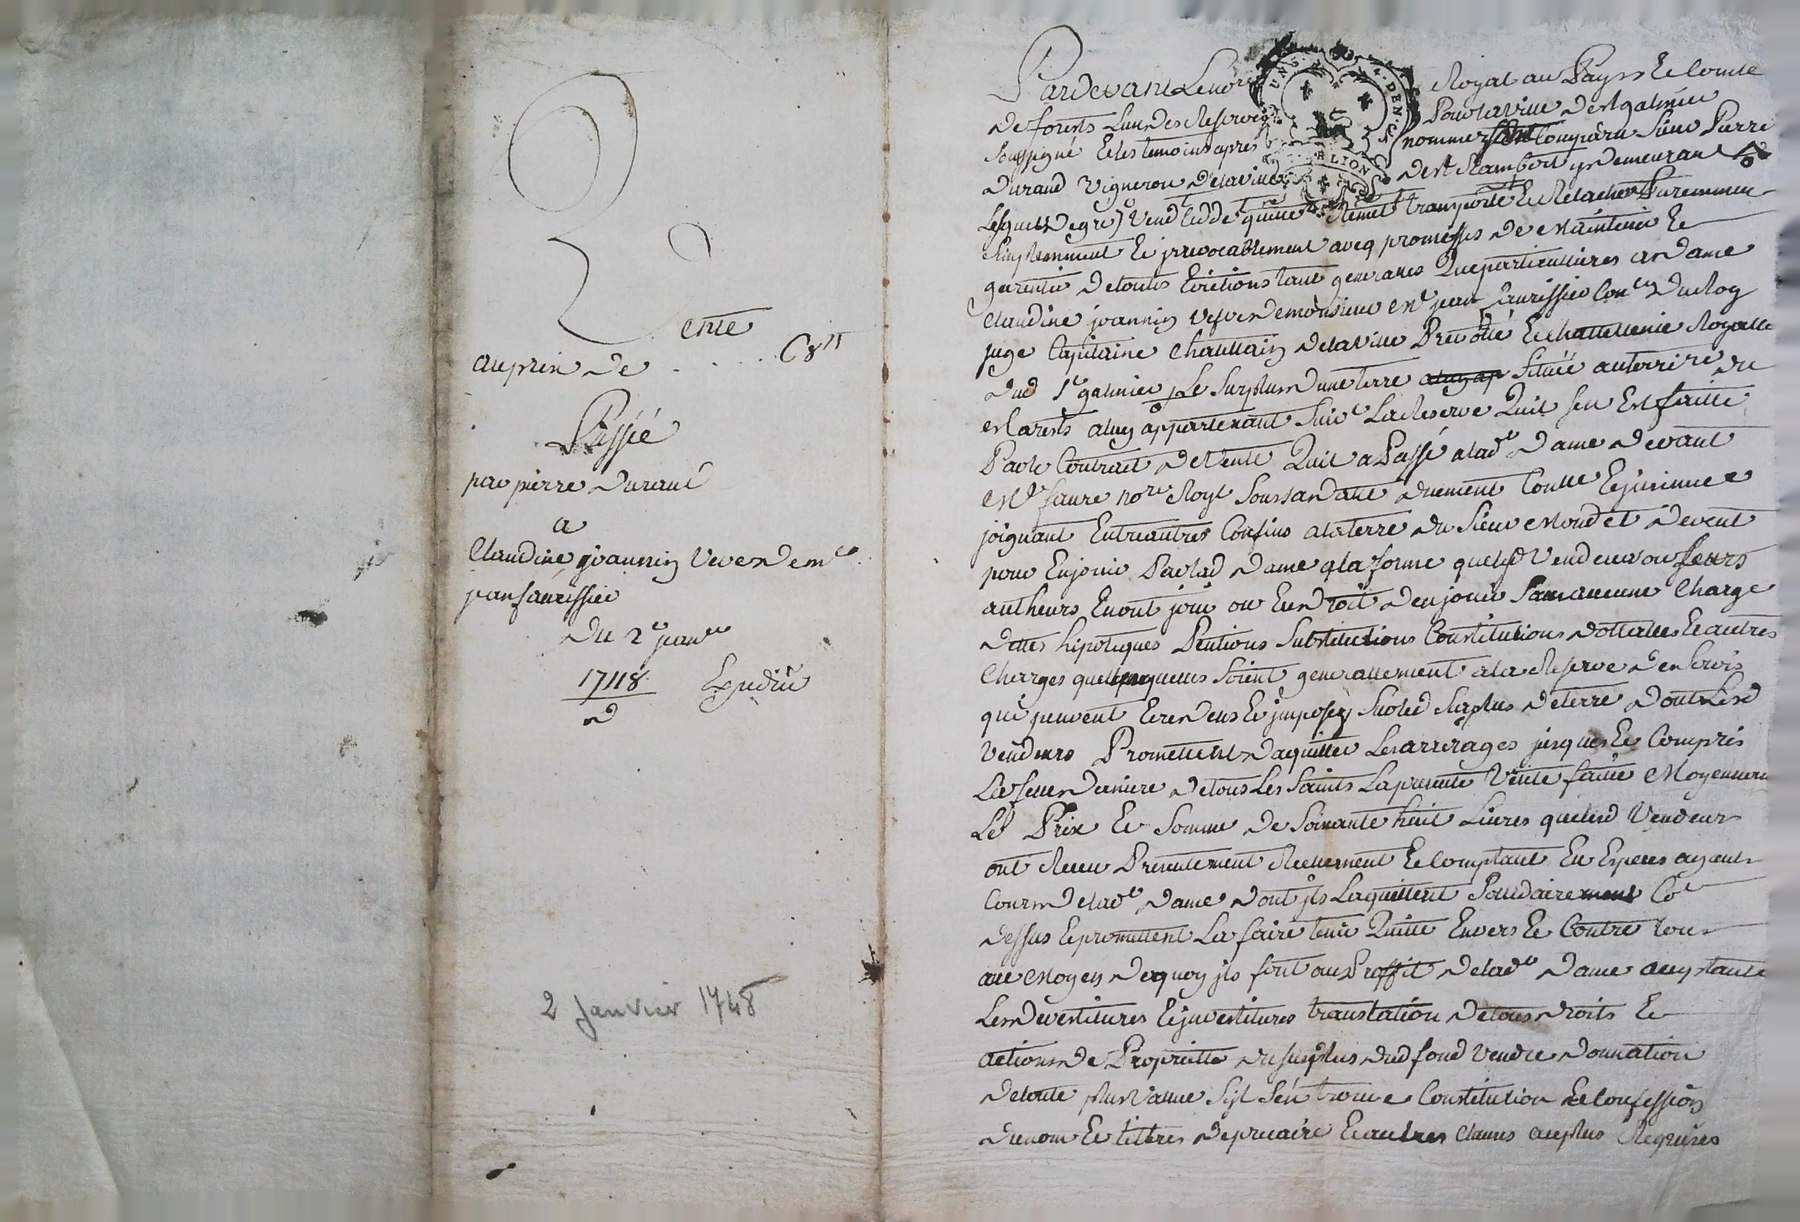 Vente
au prix de . . . 68 ll
Passée
par pierre Durand
a
Claudine joannin veuve de me
jean faurissier
Du 2e janer
1748 Expediée
2 Janvier 1748
Pardevant Le nore Royal au Pays Et Comté
de forests Lun des Reservés Pour la ville de st galmier
soussigné Et les temoins apres nommez sont Comparu Sieur Pierre
Durand vigneron de la ville de st Rambert y demeurant
Lesquels de gré vend cedde quitte Remet transporte Et Relache Purement
Simplement Et jrrevocablement aveq promesses de Maintenir Et
garentir de toutes Evictions tant generalles Que particullieres a Dame
Claudine joannin vefve de monsieur Me jean faurissier Coner Du Roy
juge Capitaine Chattelain de la ville Prevoté Et chattellenie Royalle
dud St galmier Le Surplus d'une terre située au terroire du
Marests a luy appartenant suivt La Reserve Quil sen Est faitte
Par le Contrait de Vente Quil a Passé a lade Dame devant
Me faure nore Royl Soussandatte duement Contlé Et jnsinué
joignant Entre autres Confins a la terre du Sieur Moudet devent
pour En jouir Par lad Dame a la forme que lesd Vendeurs ou leurs
autheurs En ont joui ou Eu Droit den jouir Sans aucune Charge
dettes hipoteques Pentions Substitutions Constitutions dottalles Et autres
Charges quelquonques soient generallement a la Reserve den Cens
qui peuvent Etre deus Et jmposez Sur led Surplus de terre dont Lesd
Vendeurs Promettent daquitter Les arrerages jusques Et Compris
La fette derniere de tous Les Saints La presente Vente faitte Moyennant
Le Prix Et Somme de Soixante huit Livres que lesd Vendeurs
ont Receu Presentement Reellement Et Comptant En Especes ayant
Cours de lade Dame dont jls Laquittent Sollidairement Co
dessus Et promettent La faire tenir Quitte Envers Et Contre tous
au Moyen de quoy jls font au Proffit de lade Dame acceptante
Les devestitures Et jnvestitures translation de tous droits Et
actions de Proprietté du surplus dud fond vendu donnation
de toute plus value Syl Sen trouve Constitution Et Confession
du nom Et tittres de precaire Et autres Clauses au plus Requises